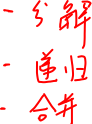 - 分解
- 递归
- 合并